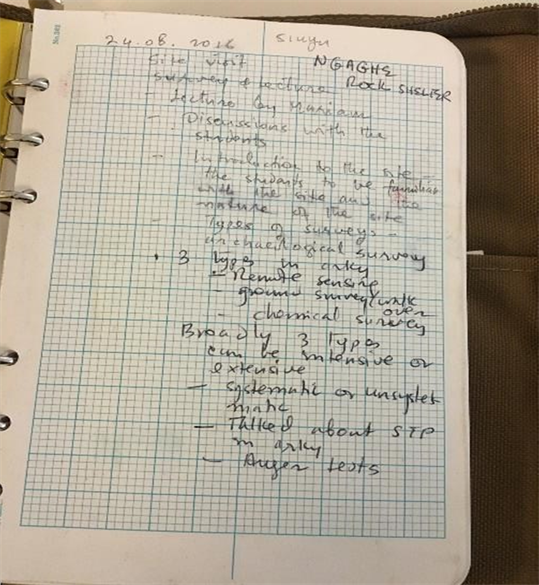 No.363
24.08.2016 Siuyu
Site visit NGAGHE
survey & lecture ROCK SHELTER
- Lecture by Mariam
- Discussions with the
students
- Introduction to the site -
the students to be familias
with the site and the
nature of the site
- Types of surveys -
archaeological survey
3 types in arky
- Remote sensing
ground survey/walk
over
- chemical survey
Broadly 3 Types
can be intensive or
extensive
- systematic or unsystet
matic
- Talked about STP
in arky
- Auger tests